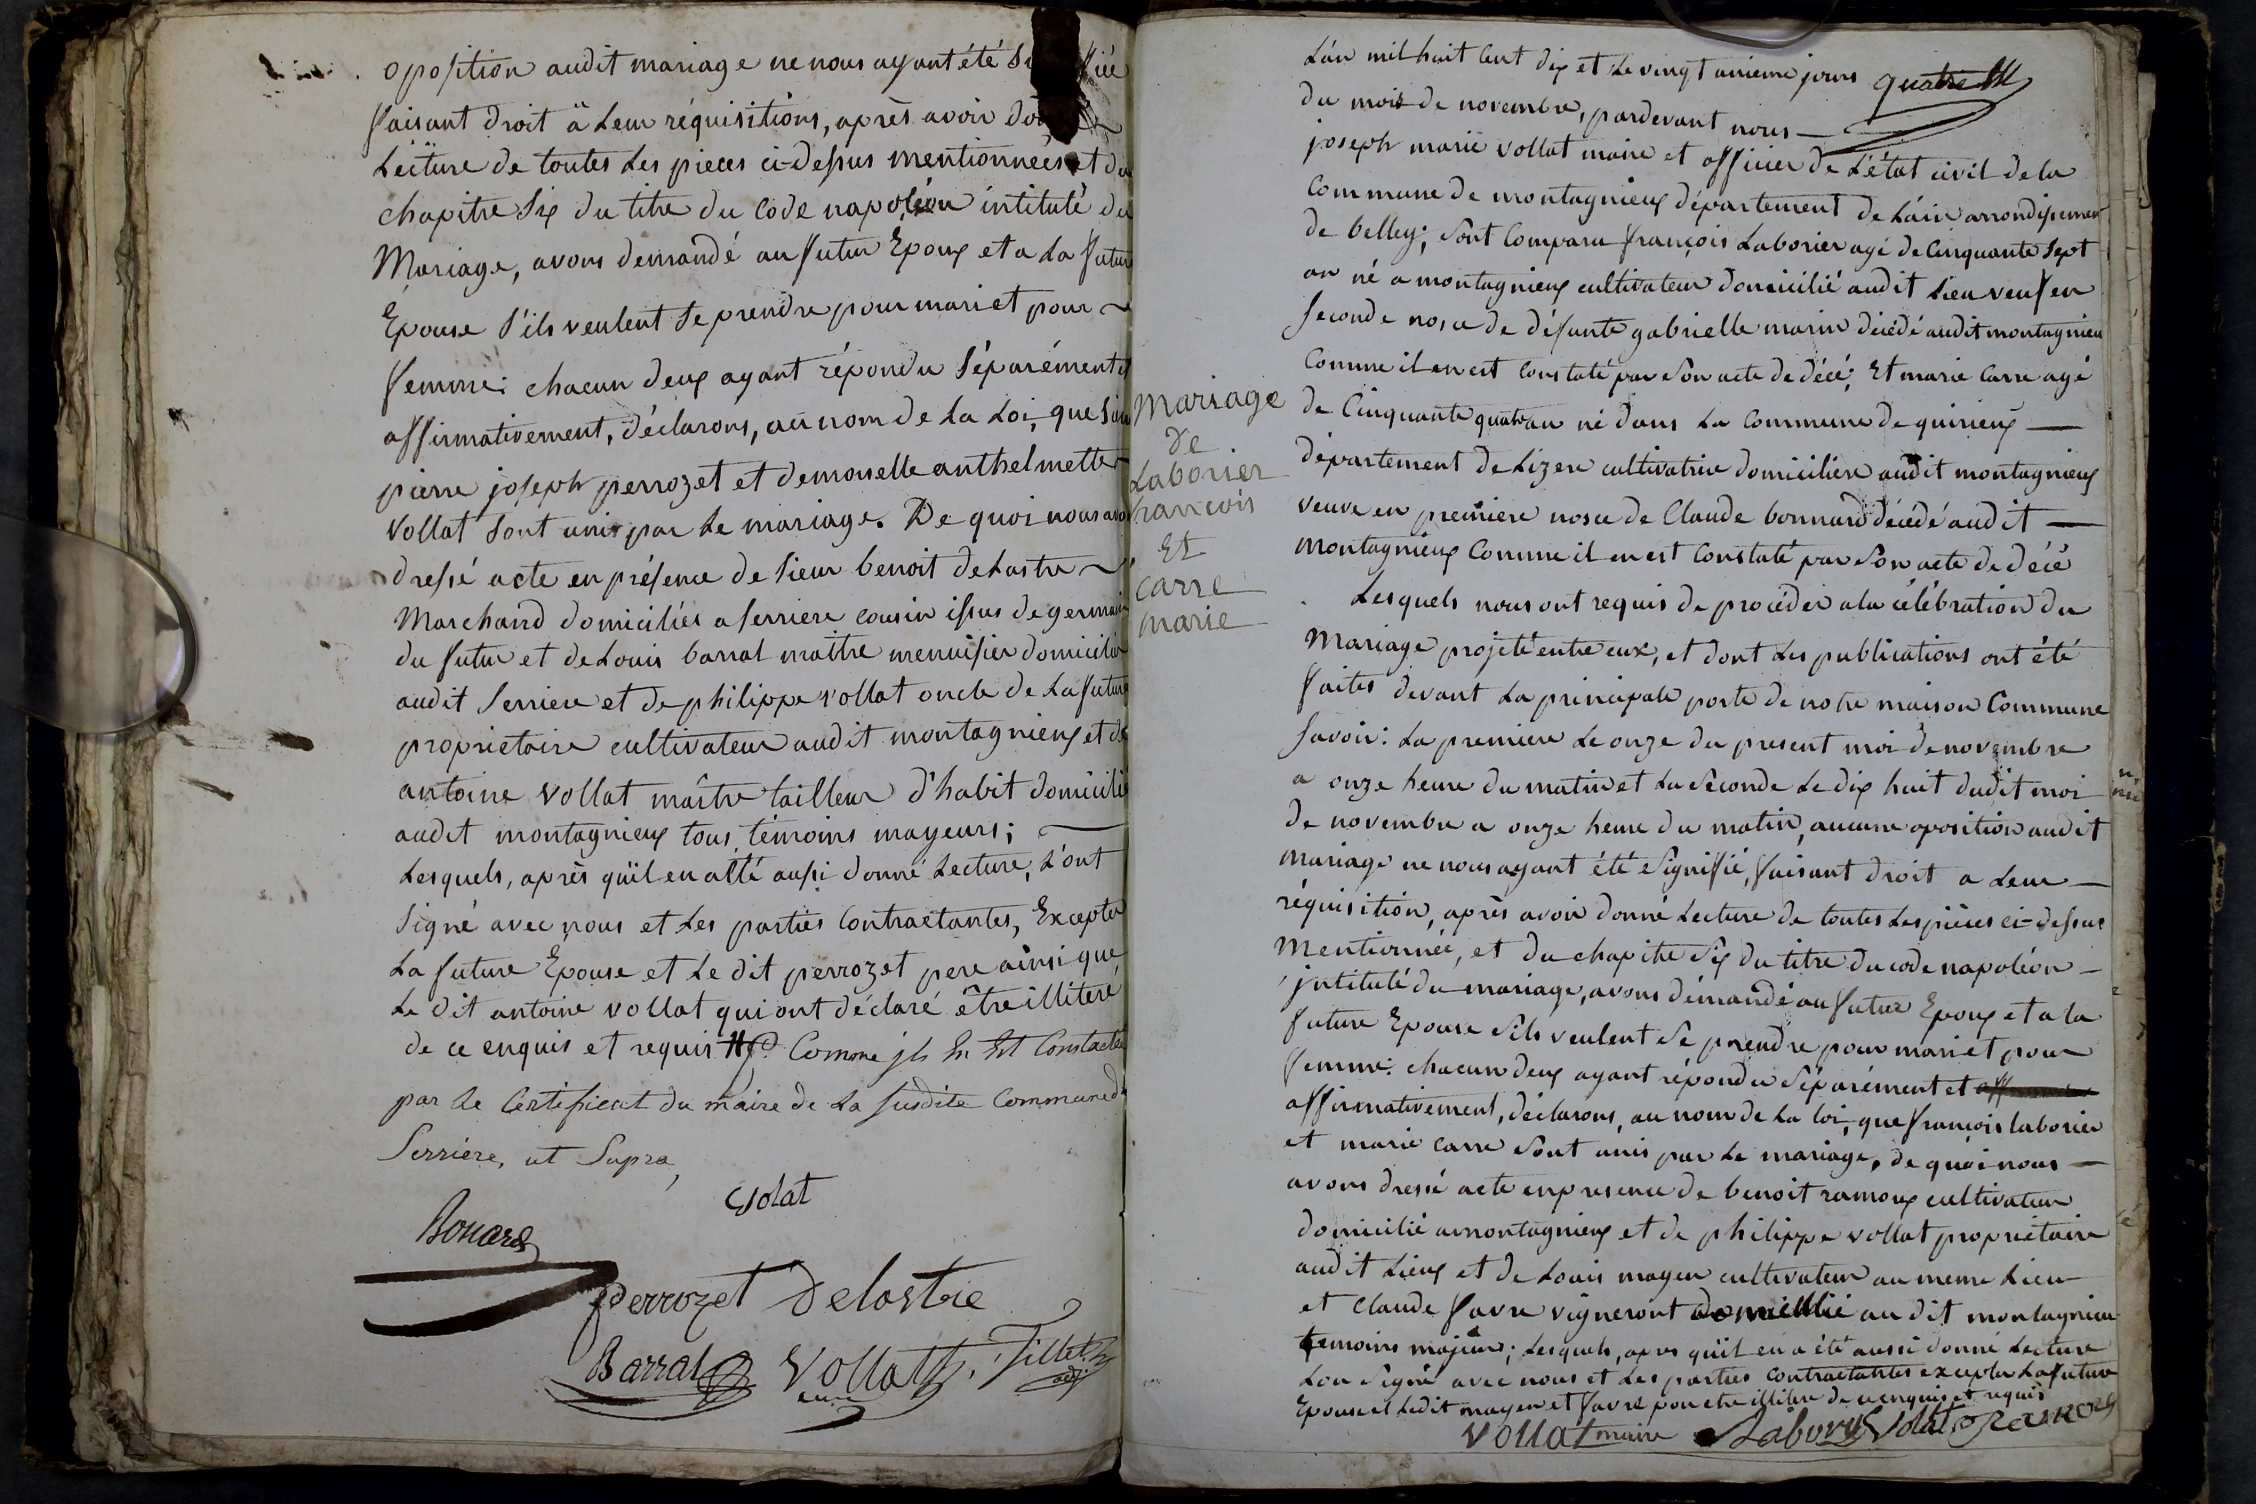 oposition audit mariage ne nous ayant été
faisant droit à leur réquisitions, après avoir
Lecture de toutes les pieces ci-dessus mentionnées et du
chapitre six du titre du Code napoléon intitulé du
Mariage, avons demandé au futur Epoux et a la future
Epouse s'ils veulent se prendre pour mari et pour
femme: chacun deux ayant répondu séparément et
affirmativement, déclarons, au nom de la Loi, que sieur
pierre joseph perrozet et demoiselle anthelmette
vollat sont unis par le mariage. De quoi nous avons
dressé acte en présence de sieur benoit delastre
Marchand domiciliés a serriere cousin issus de germain
du futur et de Louis barral maître menuisier domicilié
audit serriere et de philippe vollat oncle de la future
proprietaire cultivateur audit montagnieux et de
antoine vollat maître tailleur d'habit domicilié
audit montagnieux tous témoins mayeurs;
Lesquels, après qu'il en a été aussi donné Lecture, l'ont
signé avec nous et les parties Contractantes, Excepter
La future Epouse et le dit perrozet pere ainsi que
le dit antoine vollat qui ont déclaré être illiteré
de ce enquis et requis Comme jl En Est Constaté
par le Certificat du maire de la susdite Commune de
Serriere, ut supra,
Volat
Bonard
perrozet Delastre
Barral Vollat Tillet
adj.
Mariage
de
Laborier
francois
Et
Carre
marie
L'an mil huit Cent dix et le vingt unieme jours
du mois de novembre, pardevant nous
joseph marie vollat maire et officier de L'état civil de la
Commune de montagnieux département de L'ain arrondissement
de belley; sont Comparu françois Laborier agé de Cinquante sept
an né a montagnieux cultivateur domicilié audit Lieu veuf en
seconde nosce de défunte gabrielle marin décédé audit montagnieu
Comme il en est Constaté par son acte de décé; Et marie Carre agé
de Cinquante quatre an né dans la Commune de quirieux
département de Lizere cultivatrice domiciliere audit montagnieux
veuve en premiere nosce de Claude bonnard décédé audit
montagnieux Comme il en est Constaté par son acte de décé
Lesquels nous ont requis de procéder a la célébration du
Mariage projeté entre eux, et dont les publications ont été
faites devant la principale porte de notre maison Commune
savoir: la premiere le onze du present moi de novembre
a onze heure du matin et la seconde le dix huit dudit moi
de novembre a onze heure du matin, aucune oposition audit
Mariage ne nous ayant été signifié, faisant droit a leur
réquisition, après avoir donné Lecture de toutes les pièces ci-dessus
Mentionnée, et du chapitre six du titre du code napoléon
jntitulé du mariage, avons démandé au futur Epoux et a la
future Epouse s'ils veulent se prendre pour mari et pour
femme: chacun deux ayant répondu séparément et
affirmativement, déclarons, au nom de la loi, que françois laborier
et marie carre sont unis par le mariage, de quoi nous
avons dressé acte en presence de benoit ramoux cultivateur
domicilié a montagnieux et de philippe vollat proprietaire
audit Lieux et de Louis mayen cultivateur au meme Lieu
et Claude favre vigneront domicillié au dit montagnieu
temoins majeur; lesquels, apres qu'il en a été aussi donné Lecture
Lon signé avec nous et les parties Contractantes excepter La future
Epouse et ledit mayen et favre pour etre illitere de ce enquis et requis
Vollat maire Labory Volat Ramoux